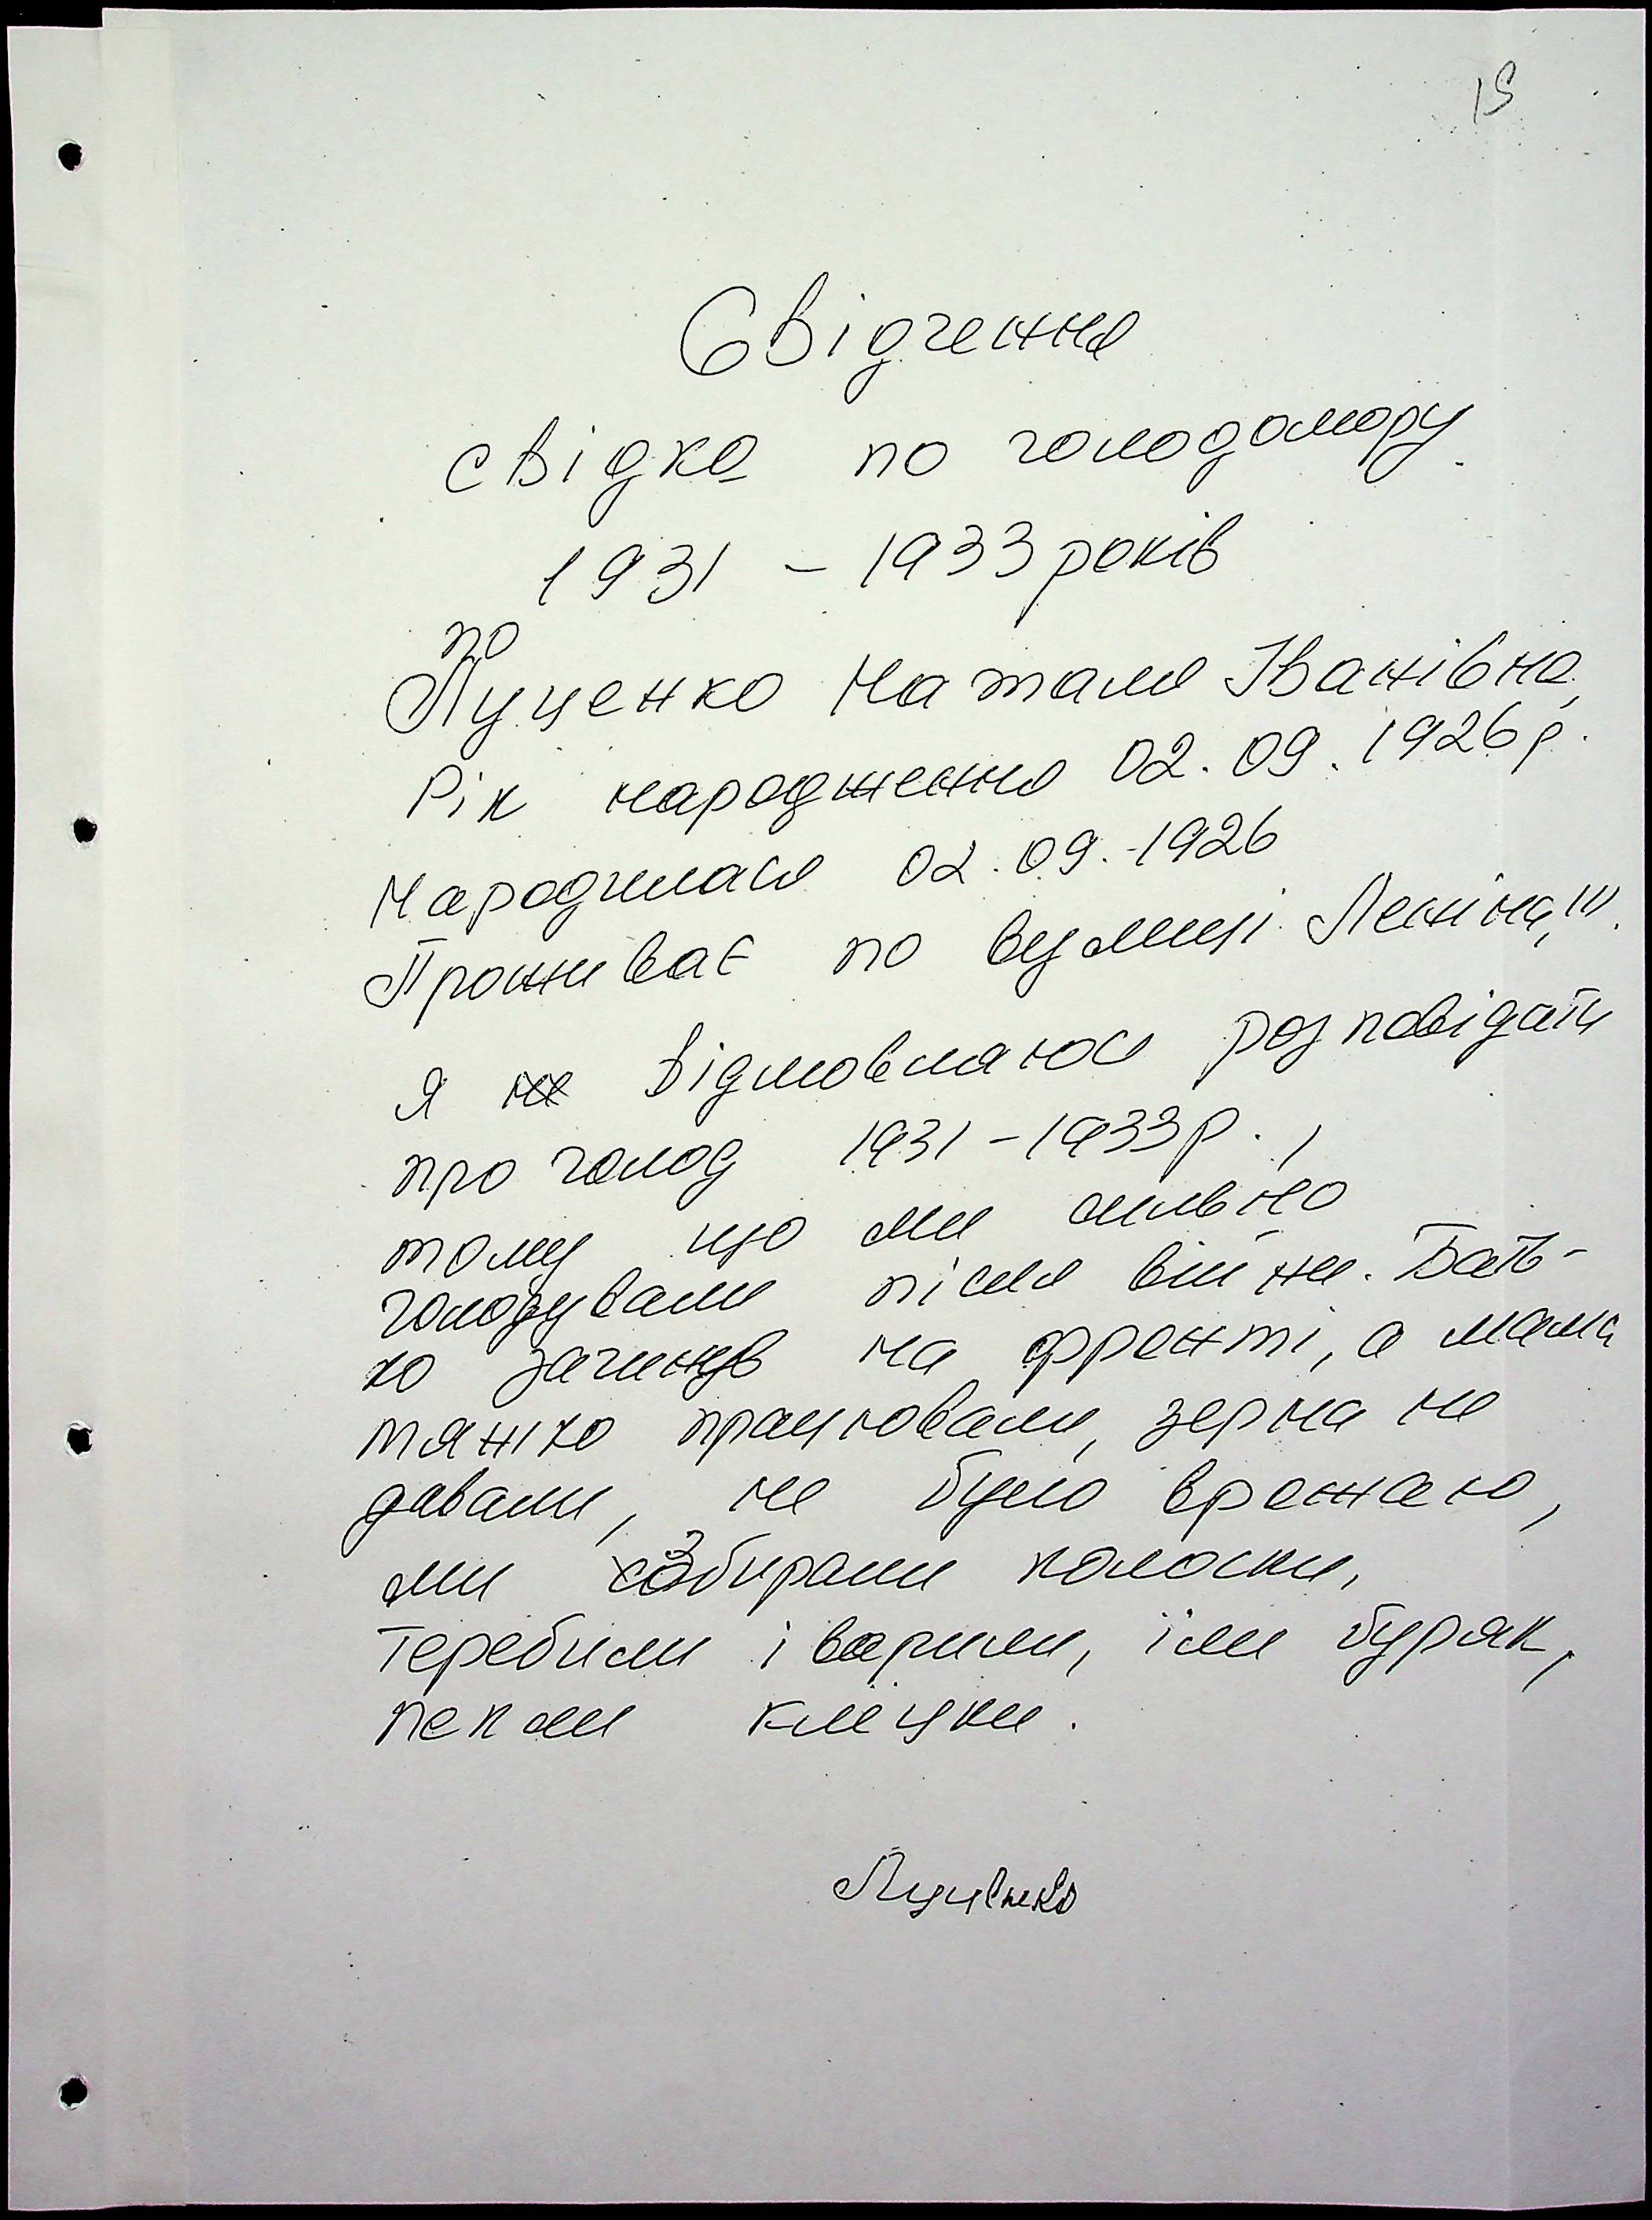 15
Свідчення
свідка по голодомору
1931 – 1933 років
по
Луценко Наталя Іванівна,
Рік народження 02.09.1926р.
Народилася 02.09.1926
Проживає по вулиці Леніна, 111.
Я не відмовляюся розповідати
про голод 1931 – 1933р.,
тому що ми сильно
голодували після війни. Бать-
ко загинув на фронті, а мама
тяжко працювали, зерна не
давали, не було врожаю,
ми збирали колоски,
теребили і варили, їли буряк,
пекли клецки.
Луценко